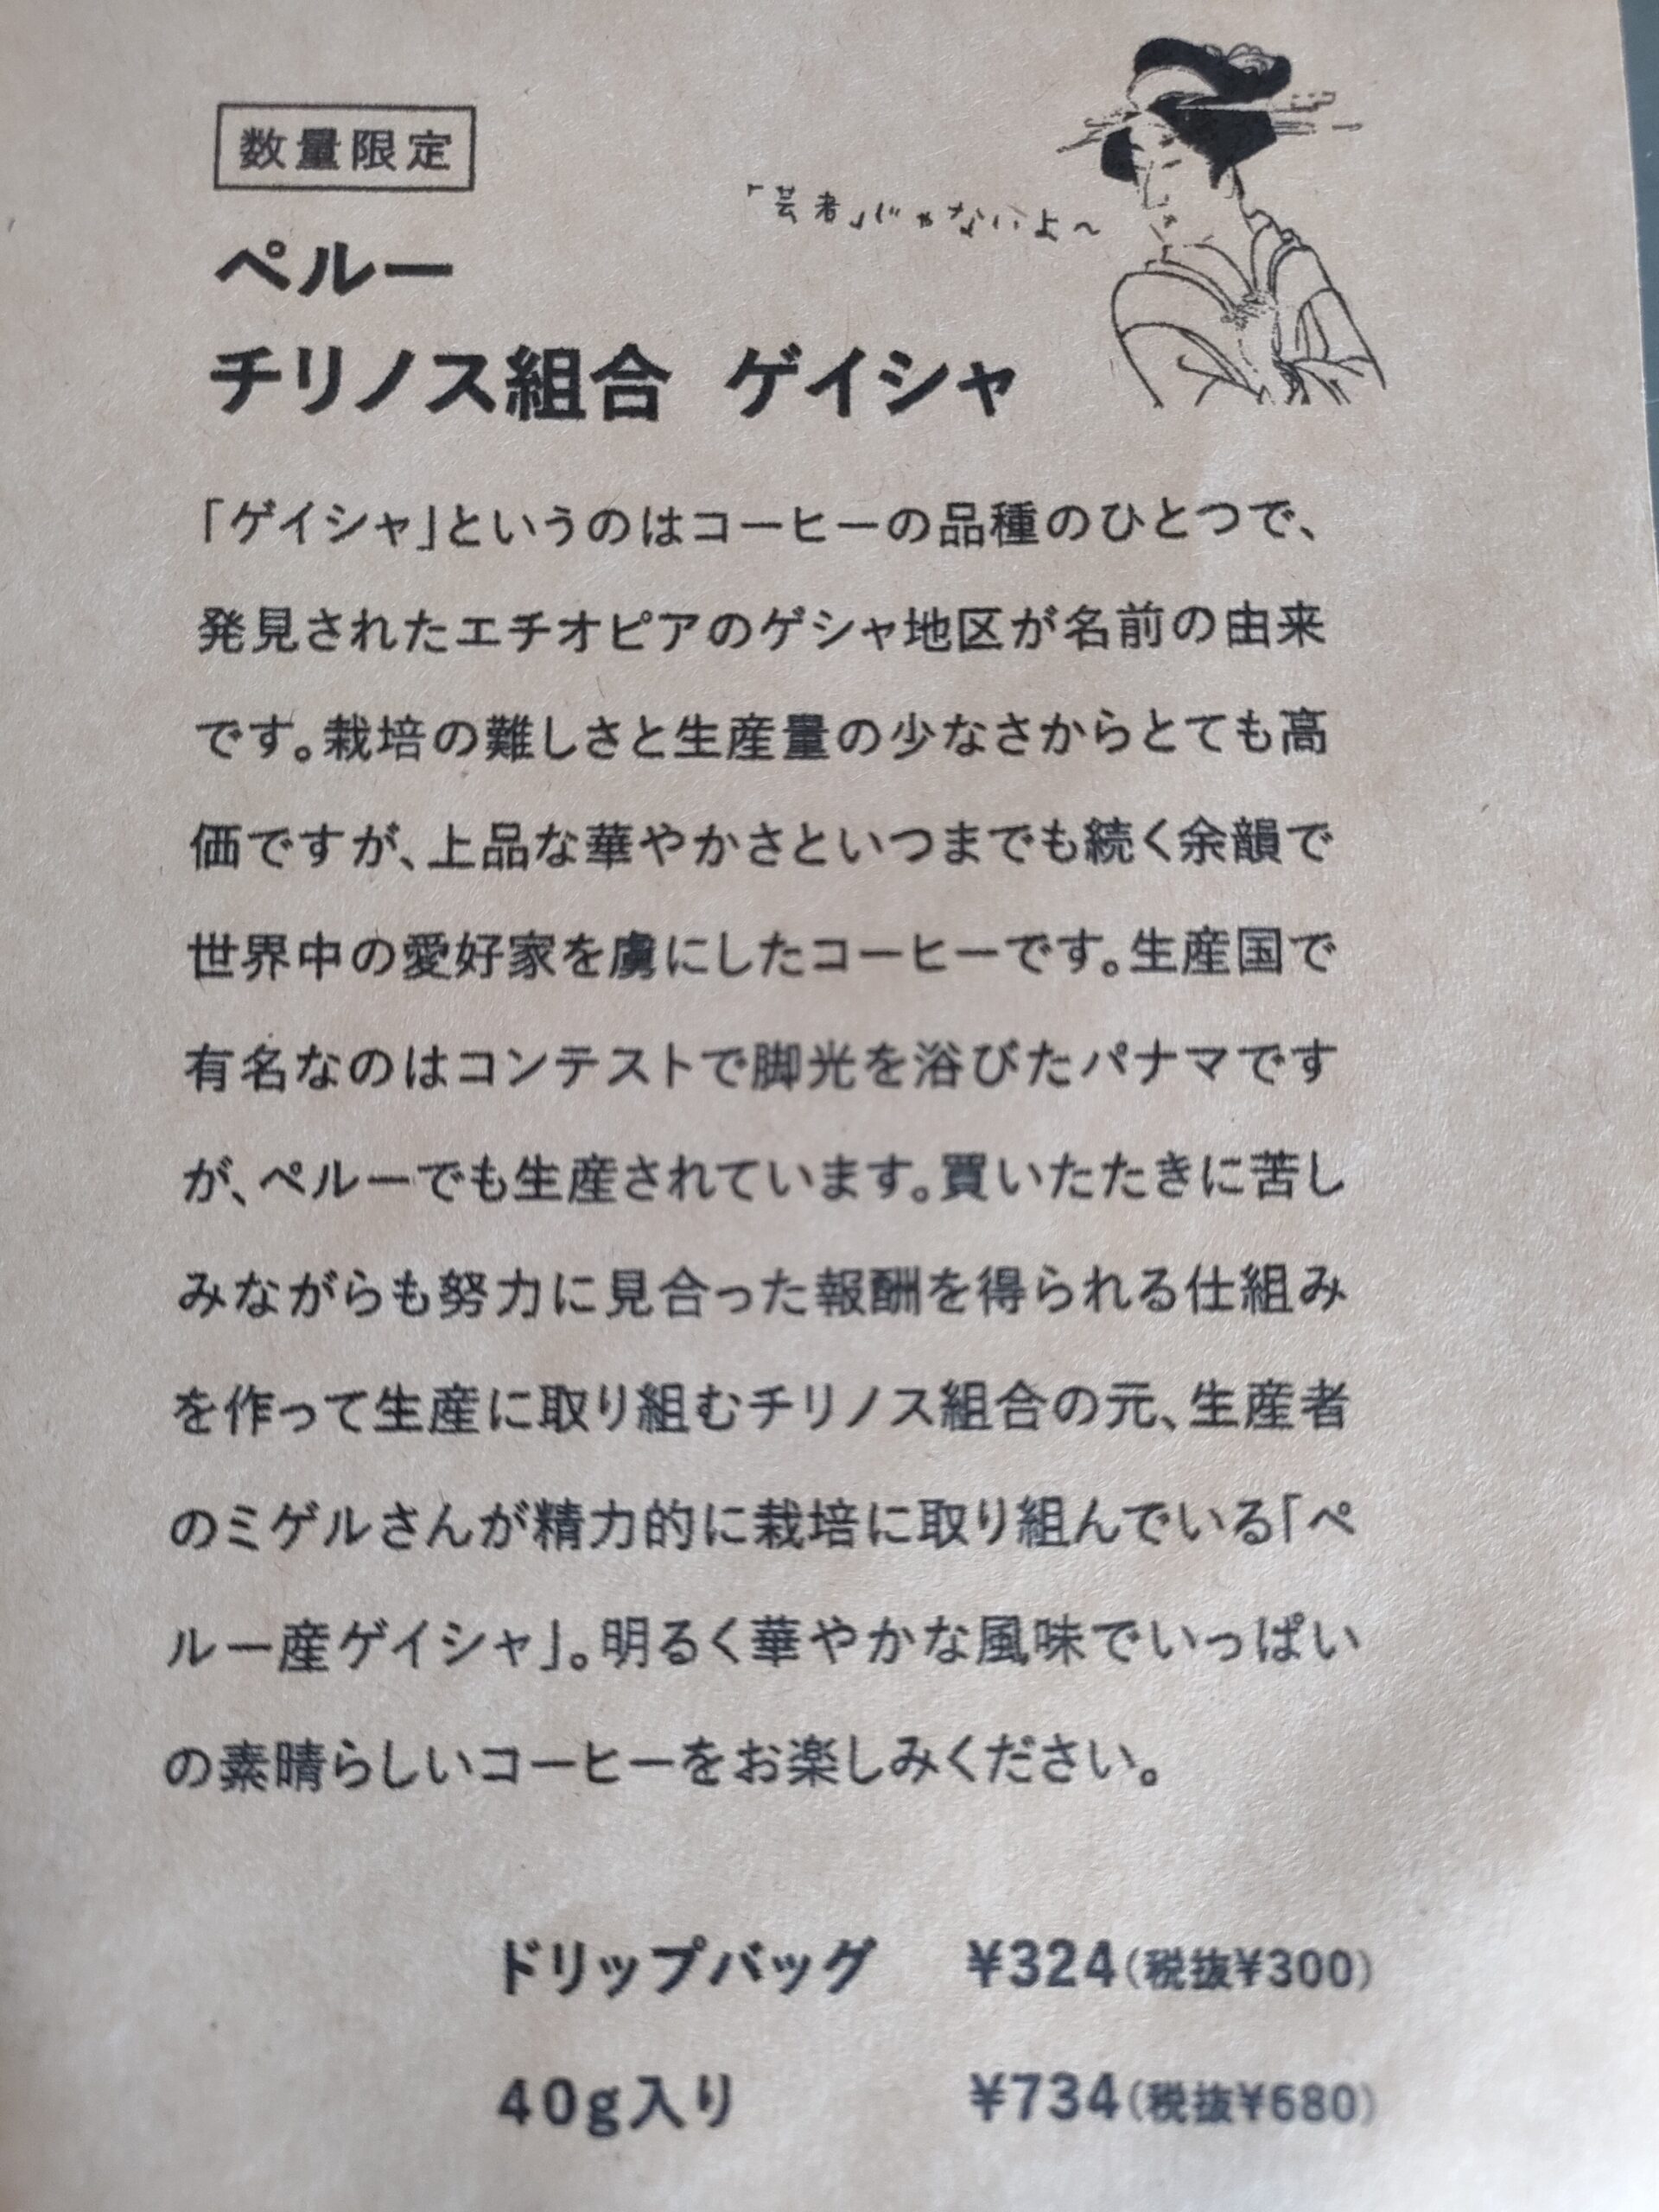 数量限定
「芸者」じゃないよ〜
ペルー
チリノス組合 ゲイシャ
「ゲイシャ」というのはコーヒーの品種のひとつで、
発見されたエチオピアのゲシャ地区が名前の由来
です。栽培の難しさと生産量の少なさからとても高
価ですが、上品な華やかさといつまでも続く余韻で
世界中の愛好家を虜にしたコーヒーです。生産国で
有名なのはコンテストで脚光を浴びたパナマです
が、ペルーでも生産されています。買いたたきに苦し
みながらも努力に見合った報酬を得られる仕組み
を作って生産に取り組むチリノス組合の元、生産者
のミゲルさんが精力的に栽培に取り組んでいる「ペ
ルー産ゲイシャ」。明るく華やかな風味でいっぱい
の素晴らしいコーヒーをお楽しみください。
ドリップバッグ ¥324(税抜¥300)
40g入り ¥734(税抜¥680)